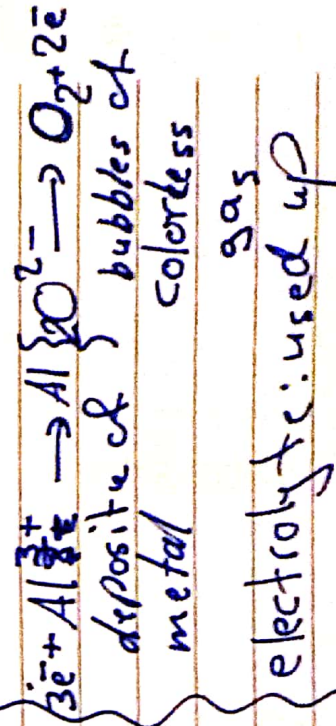 3e⁻ + Al³⁺ → Al } 2O²⁻ → O₂ + 2e⁻
deposite of } bubbles of
metal colorless
gas
electrolyte: used up